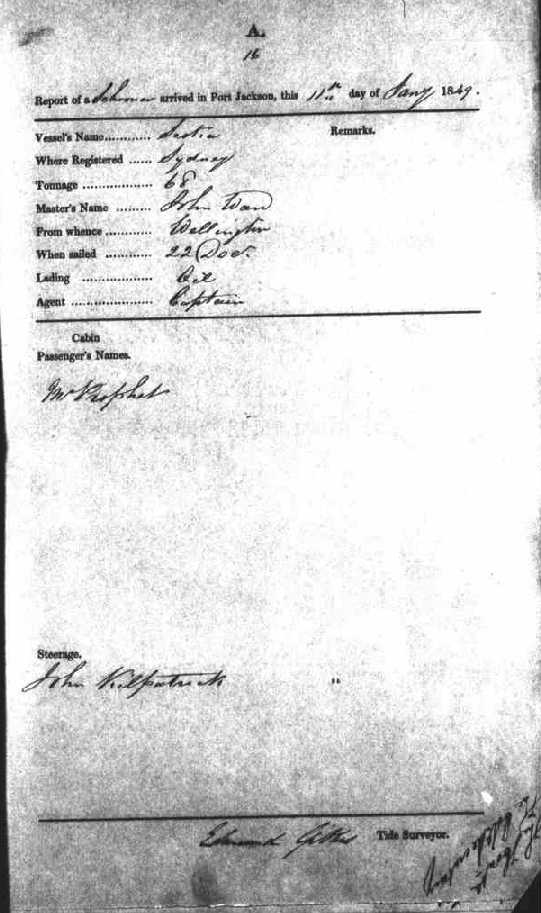 A.
16
Report of a Schooner arrived in Port Jackson, this 11th day of Jany 1849.
Remarks.
Vessel's Name............ Scotia
Where Registered ...... Sydney
Tonnage .................. 68
Master's Name ......... John
From whence ............ Wellington
When sailed ............ 22 Dec.
Lading ..................... Oil
Agent ..................... Captain
Cabin
Passenger's Names.
Mr Prophet
Steerage.
John Kilpatrick "
Edmund Tide Surveyor.